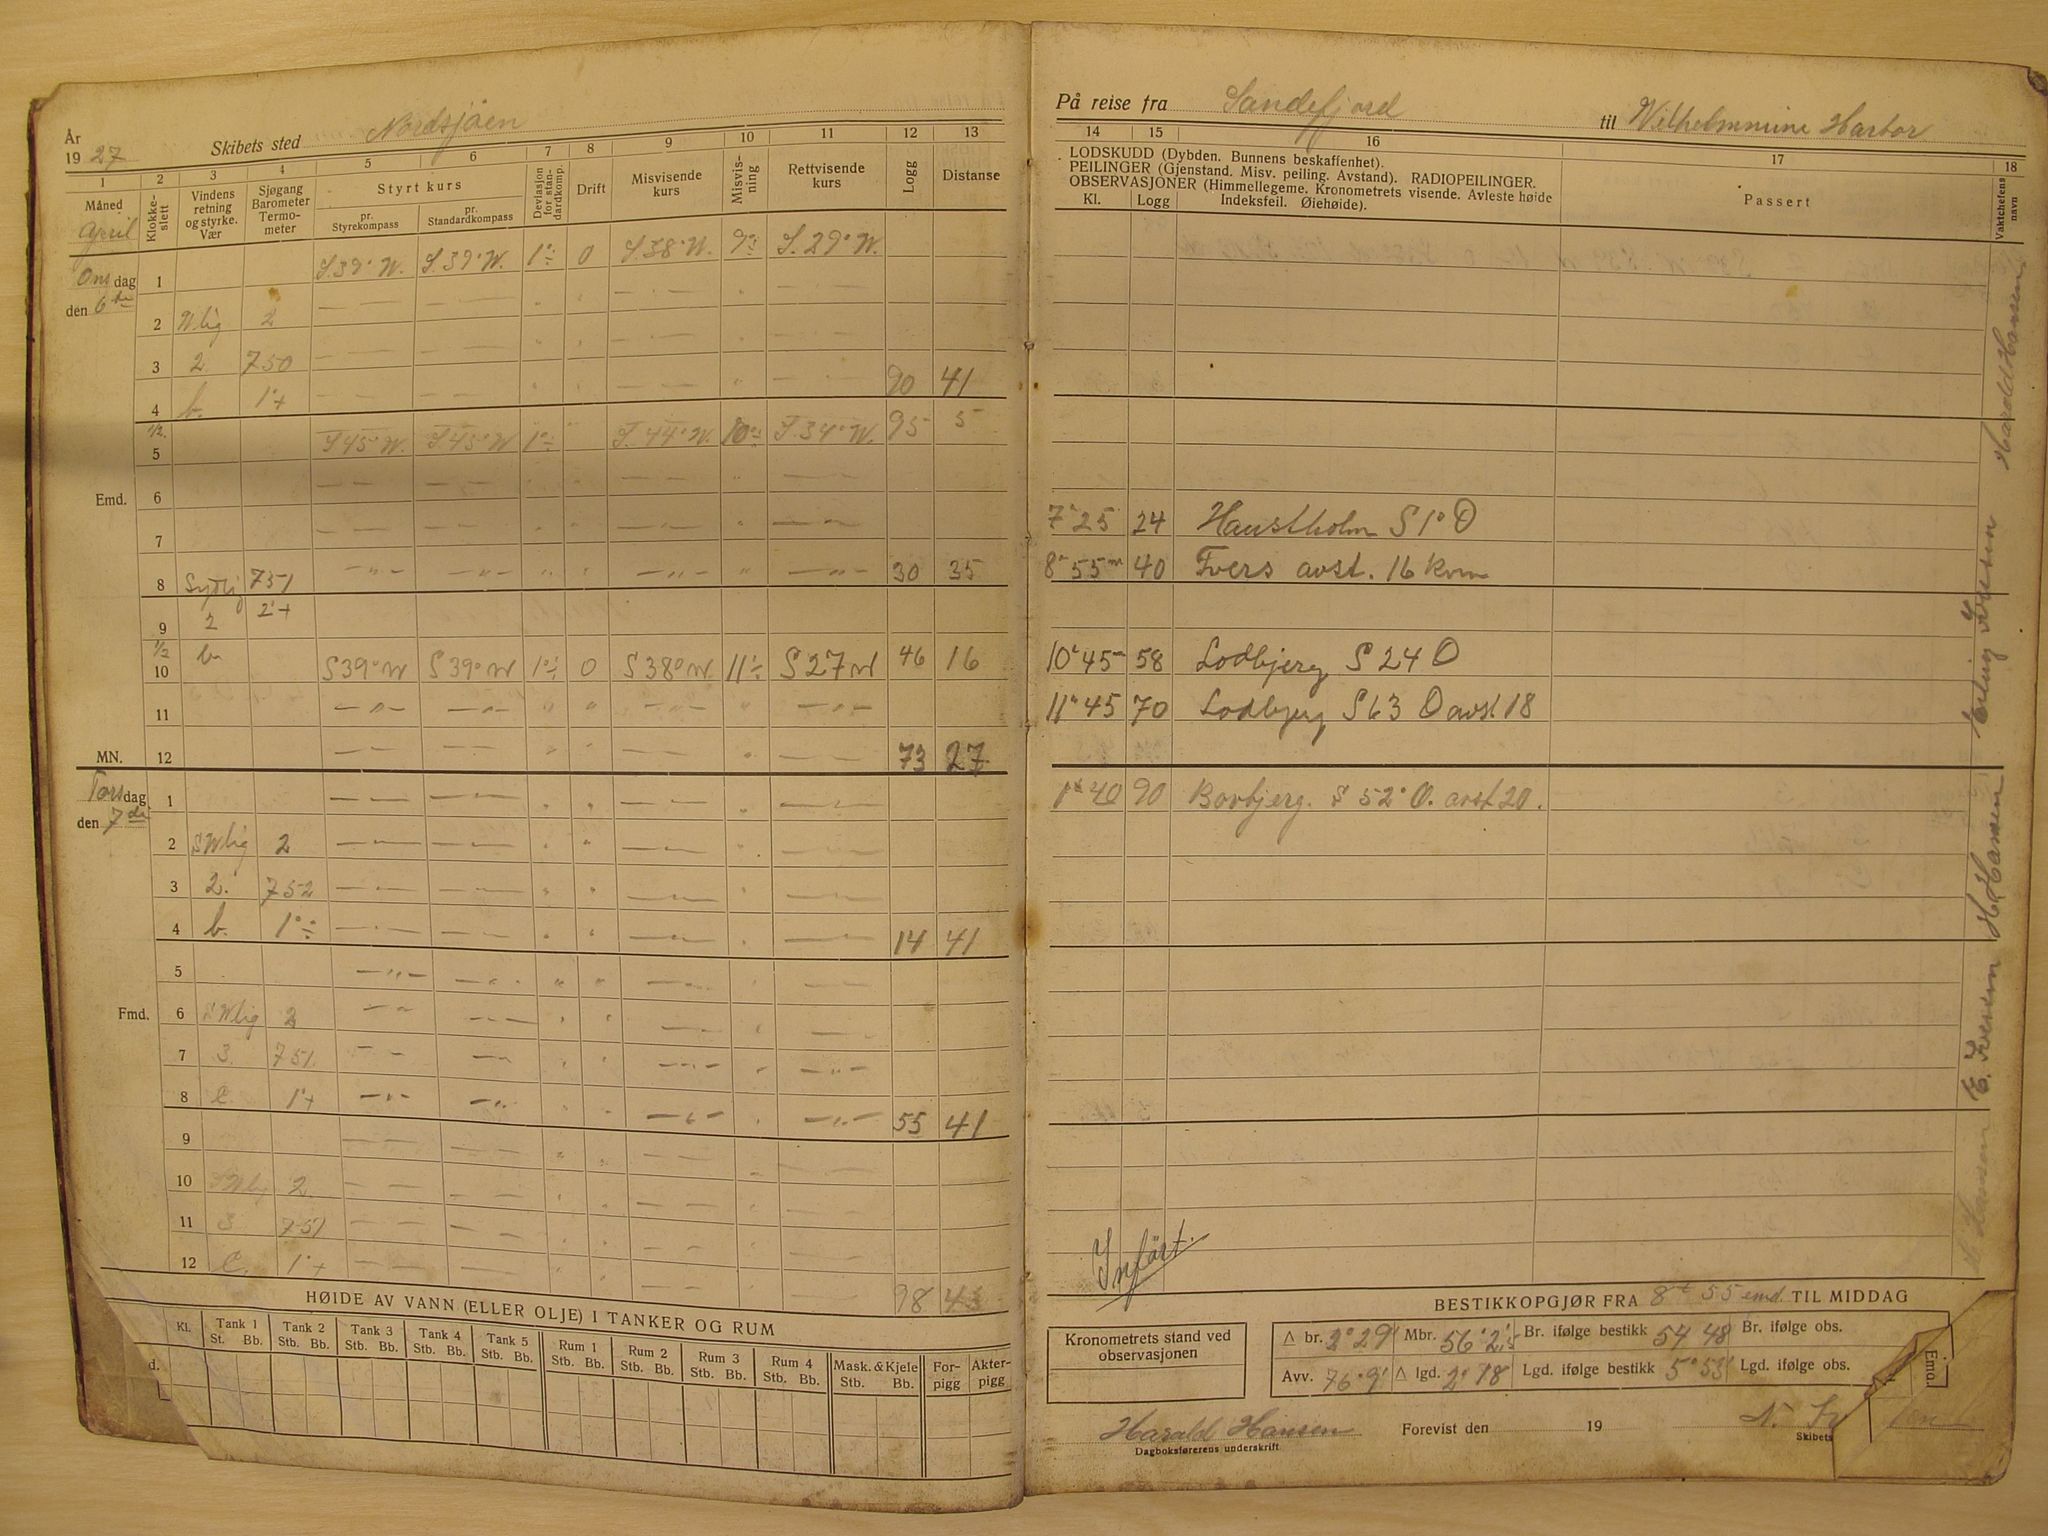 År 1927 Skibets sted Nordsjöen
1 2 3 4 5 6 7 8 9 10 11 12 13
Måned April Klokke-slett Vindens retning og styrke. Vær Sjøgang Barometer Termo-meter Styrt kurs pr. Styrekompass pr. Standardkompass Deviasjon for stan-dardkomp. Drift Misvisende kurs Misvis-ning Rettvisende kurs Logg Distanse
Onsdag 1 S.39°W. S.39°W. 1°÷ 0 S.38°W. 9°÷ S.29°W.
den 6te
2 N.lig 2
3 2 750
4 b. 1°+ 90 41
1/2. 5 S45°W. S.45°W 1°÷ S.44°W. 10°÷ S.34°W. 95 5
Emd. 6
7
8 Sydlig 751 — " — — " — — " — — " — 30 35
9 2 2°+
1/2 10 b. S39°W S39°W 1°÷ 0 S38°W. 11°÷ S27W 46 16
11 — " — — " — " " — " — " — " —
MN. 12 73 27
Torsdag 1
den 7de
2 SWlig 2
3 2. 752
4 b. 1°÷ 14 41
5
Fmd. 6 SWlig 2
7 3. 751.
8 C. 1°+ 55 41
9
10 2.
11 3 751
12 C. 1°+ 98 43
HØIDE AV VANN (ELLER OLJE) I TANKER OG RUM
Kl. Tank 1 Tank 2 Tank 3 Tank 4 Tank 5 Rum 1 Rum 2 Rum 3 Rum 4 Mask. & Kjele For-pigg Akter-pigg
St. Bb. Stb. Bb. Stb. Bb. Stb. Bb. Stb. Bb. Stb. Bb. Stb. Bb. Stb. Bb. Stb. Bb. Stb. Bb.
d.
På reise fra Sandefjord til Wilhelmmine Harbor
14 15 16 17 18
LODSKUDD (Dybden. Bunnens beskaffenhet).
PEILINGER (Gjenstand. Misv. peiling. Avstand). RADIOPEILINGER.
OBSERVASJONER (Himmellegeme. Kronometrets visende. Avleste høide
Kl. Logg Indeksfeil. Øiehøide). Passert Vaktchefens navn
7°25 24 Hanstholm S 1° O
8°55m 40 Tvers avst. 16 kvm
10°45m 58 Lodbjerg S 24 O
11°45 70 Lodbjerg S 63 O avst 18
1°40 90 Bovbjerg. S 52° O. avst 20.
Harald Hansen
H. Hansen
E. Iversen
Inført.
BESTIKKOPGJØR FRA 8t 55 emd. TIL MIDDAG
Kronometrets stand ved observasjonen
Δ br. 2°29' Mbr. 56°2'.5 Br. ifølge bestikk 54 48 Br. ifølge obs.
Avv. 76.9' Δ lgd. 2°18 Lgd. ifølge bestikk 5°53' Lgd. ifølge obs.
Emd.
Harald Hansen Forevist den 19
Dagboksførerens underskrift Skibets